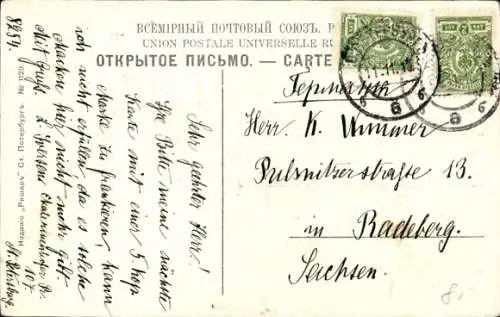 ВСЕМІРНЫЙ ПОЧТОВЫЙ СОЮЗЪ.
UNION POSTALE UNIVERSELLE
ОТКРЫТОЕ ПИСЬМО. — CARTE
Германія
Herr K. Ummer
Pulsnitzerstraße 13.
in Radeberg.
Sachsen.
8.
Sehr geehrter Herr!
Ihre Bitte meine nächste
Karte mit einer 5 kop
Marke zu frankieren, kann
ich nicht erfüllen da es solche
Marken hier nicht mehr gibt
Mit Gruß.
107
St. Petersburg.
8254.
Изданіе „Ришаръ" Ст. Петербургъ. № 1129.